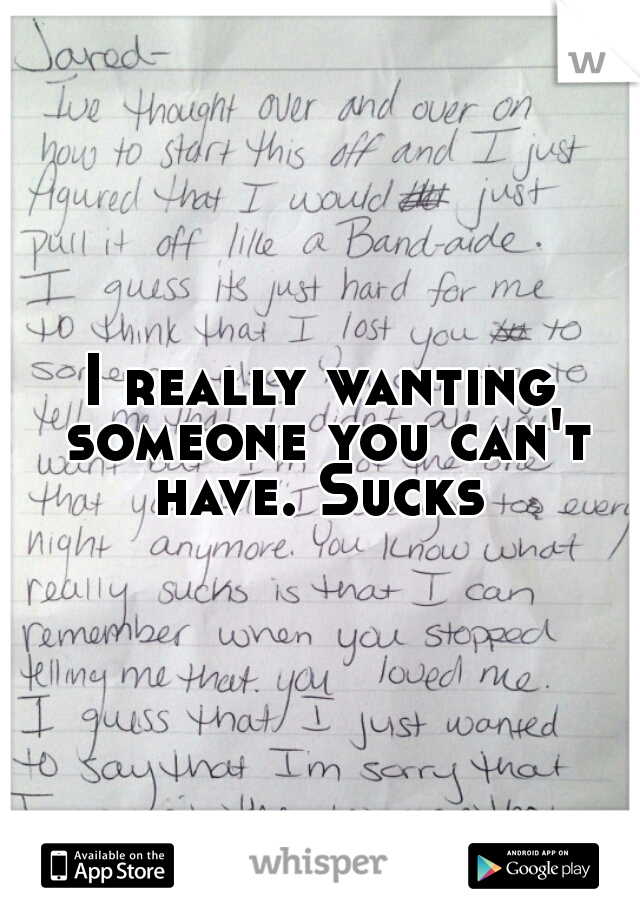 w
Jared-
Ive thought over and over on
how to start this off and I just
figured that I would just
pull it off like a Band-aide.
I guess its just hard for me
to think that I lost you to
to
I really wanting
tell me that I didn't all you
someone you can't
want but I'm not the one
have. Sucks
that I every
night anymore. You know what
really sucks is that I can
remember when you stopped
telling me that you loved me.
I guess that I just wanted
to say that I'm sorry that
Available on the
App Store
whisper
ANDROID APP ON
Google play